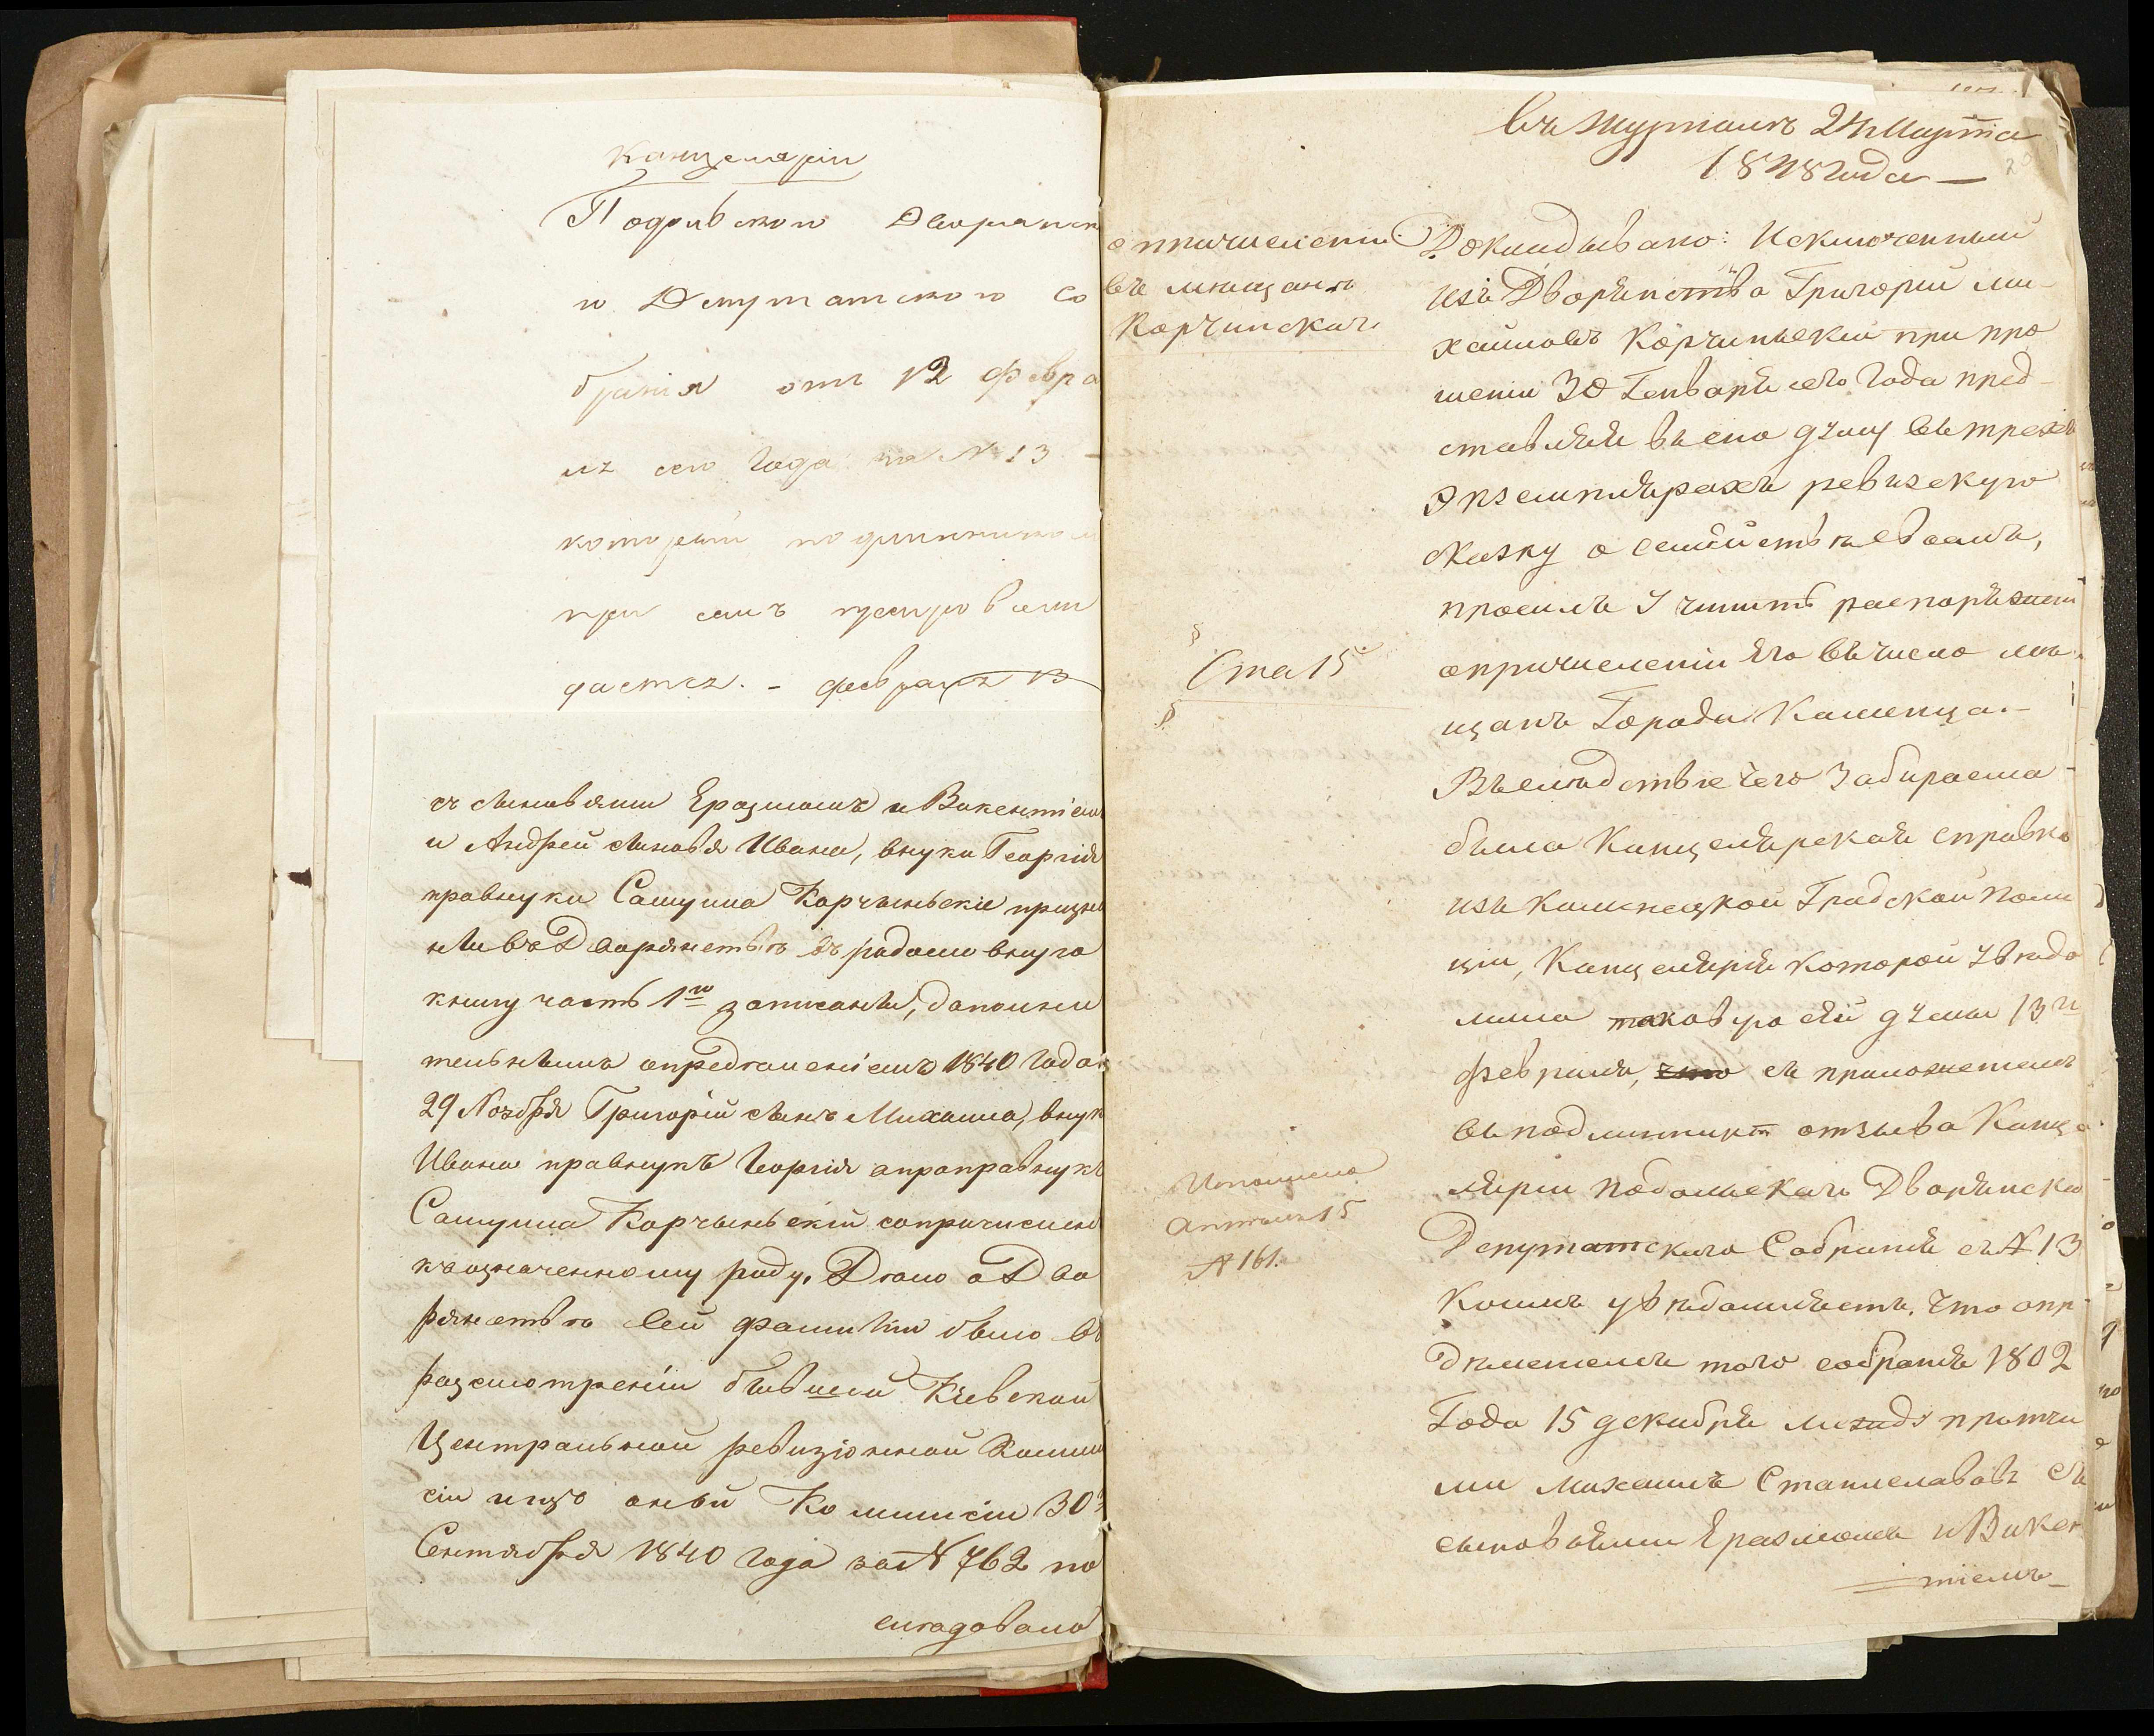 Канцелярiи
Подольского Дворянск
о Депутатского Со
бранiя отъ 12 Февра
ля сего года за № 13
который подлинникомъ
при семъ препровожд
дается. - февраля 13
съ сыновьями Еразмомъ и Викентiемъ
и Андрей сыновья Ивана, внуки Георгiя
правнуки Самуила Корчынскiе призна
ны въ Дворянствѣ въ родословную
книгу часть 1ю записаны, дополни
тельнымъ опредѣленiемъ 1840 года
29 Ноября Григорiй сынъ Михаила, внукъ
Ивана правнукъ Георгiя а праправнукъ
Самуила Корчыньскiй сопричисленъ
къ означенному роду. Дѣло о Дво
рянствѣ сей фамилiи было въ
разсмотренiи бывшей Кiевской
Центральной ревизiонной Коммис
сiи и изъ оной Коммисiи 30
Сентября 1840 года за № 762 по
слѣдовало
Въ Журналъ 24 Марта
1848 года —
о причисленiи
въ мещане
Корчинскихъ
Докладывано: Исключенный
изъ Дворянства Григорiй Ми-
хайловъ Корчиньскiй при про
шенiи 30 Генваря сего года пред-
ставляя въ сiю думу въ трехъ
экземплярахъ ревизскую
сказку о семействѣ своемъ,
просилъ учинить распоряженiе
о причисленiи его въ число мѣ-
щанъ города Каменца. -
Ста 15
Въ слѣдствiе чего забираема
была Канцелярская справка
изъ Каменецкой Градской Поли
цiи, Канцелярiя которой увѣдо
мила таковую сiю думу 13го
февраля, что съ приложенiемъ
въ подлинникѣ отзыва Канце
лярiи Подольскаго Дворянскаго
Депутатскаго Собранiя съ № 13
коимъ увѣдомляетъ, что опре
дѣленiемъ того собранiя 1802
Года 15 декабря между протчи
ми Михаилъ Станиславовъ съ
сыновьями Еразмомъ и Викен
тiемъ
Исполнено
Апреля 15
№ 161.